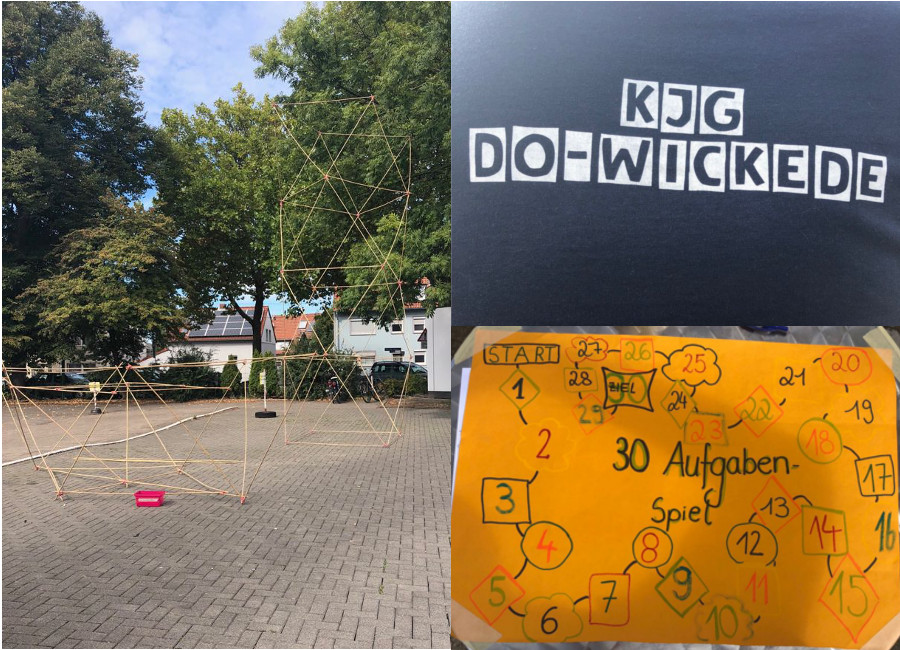 KJG
DO-WICKEDE
START
1
2
3
4
5
6
7
8
9
10
11
12
13
14
15
16
17
18
19
20
21
22
23
24
25
26
27
28
29
ZIEL
30
30 Aufgaben-
Spiel